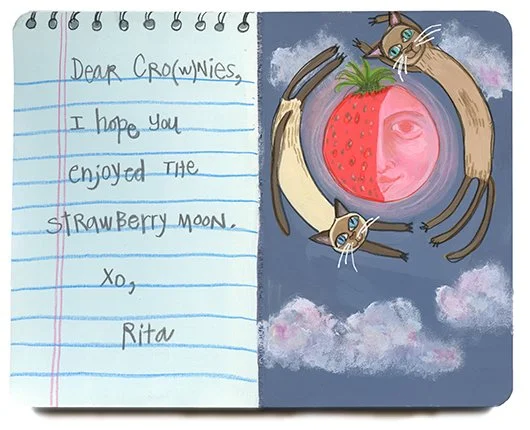 Dear Cro(w)nies,
I hope you
enjoyed the
strawberry moon.
Xo,
Rita